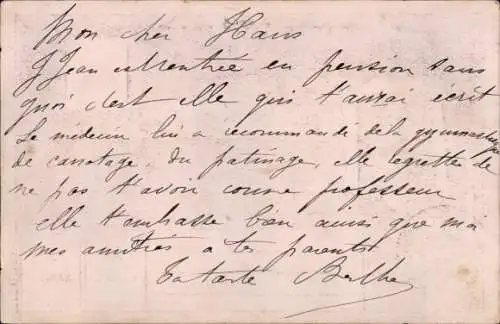 Mon cher Hans
Jean est rentrée en pension sans
quoi c'est elle qui t'aurai écrit
Le médecin lui a recommandé de la gymnastique
de canotage, du patinage, elle regrette de
ne pas t'avoir comme professeur
elle t'embrasse bien ainsi que moi
mes amitiés a tes parents
Ta tante Berthe